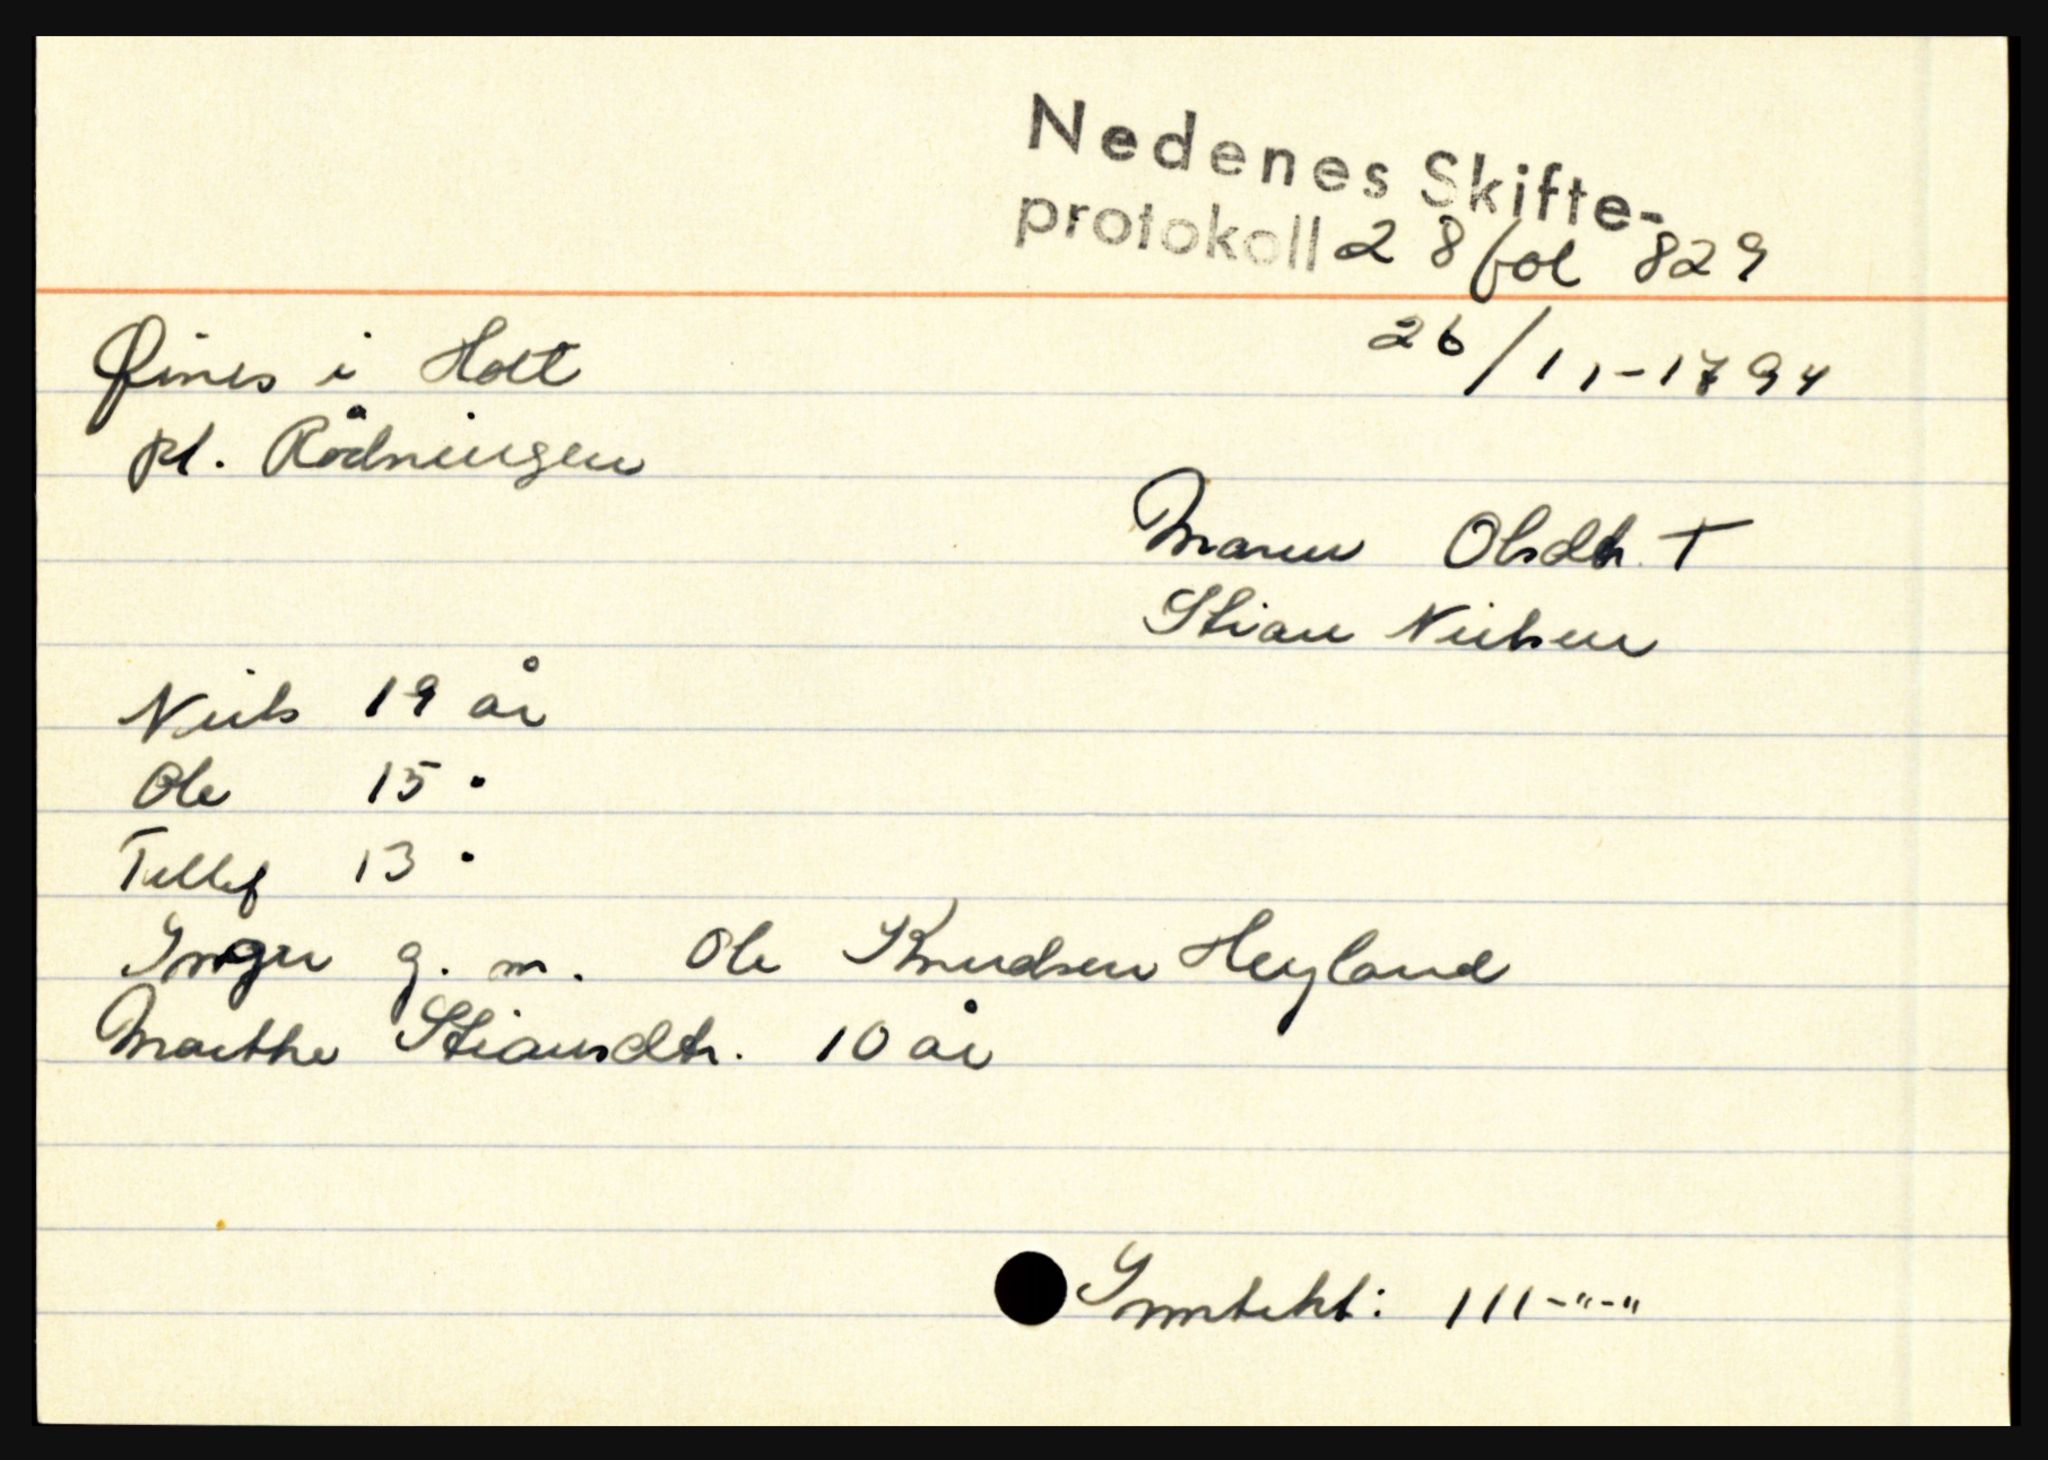 Nedenes Skifte-
protokoll 28 fol 829
26/11-1794
Fines i Holt
pl. Rødningen
Maren Olsdtr. †
Stian Nielsen
Niels 19 år
Ole 15 "
Tellef 13 "
Inger g. m. Ole Knudsen Heyland
Marthe Stiansdtr. 10 år
Inntekt: 111-"-"